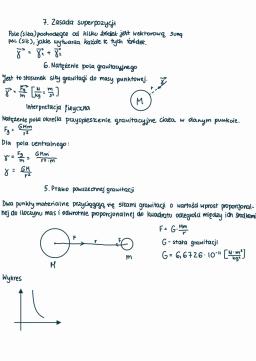 7. Zasada superpozycji
Pole (siła) pochodzące od kilku źródeł jest wektorową sumą
pól (sił), jakie wytwarza każde z tych źródeł.
γ = γ₁ + γ₂
6. Natężenie pola grawitacyjnego
Jest to stosunek siły grawitacji do masy punktowej.
γ = Fg/m [N/kg = m/s²]
M
Interpretacja fizyczna
Natężenie pola określa przyspieszenie grawitacyjne ciała w danym punkcie.
Fg = GMm/r²
Dla pola centralnego:
γ = Fg/m = GMm/r²·m
γ = GM/r²
5. Prawo powszechnej grawitacji
Dwa punkty materialne przyciągają się siłami grawitacji o wartości wprost proporcjonal-
nej do iloczynu mas i odwrotnie proporcjonalnej do kwadratu odległości między ich środkami
F = G·Mm/r²
G - stała grawitacji
G = 6,6726·10⁻¹¹ [N·m²/kg²]
F r F
M m
Wykres